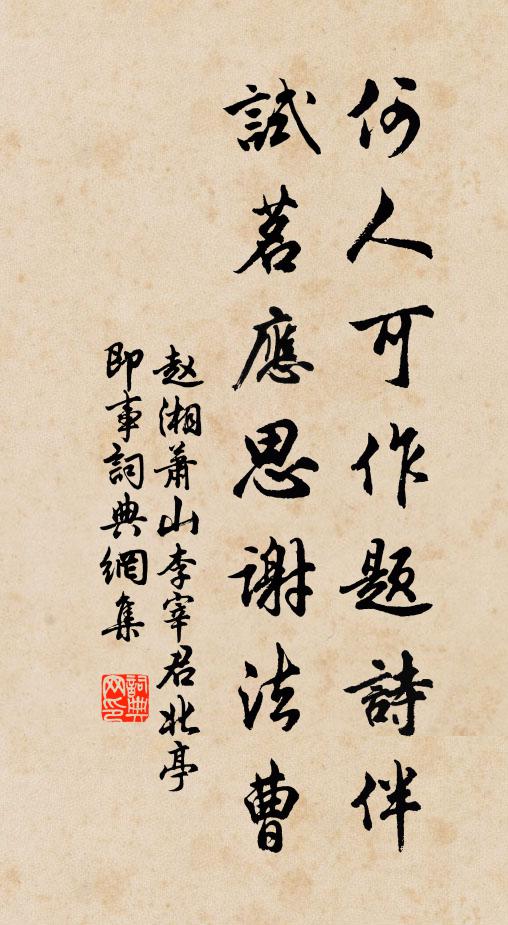 何人可作题詩伴
試茗應思谢法曹
赵湘萧山李宰君北亭
即事詞典網集
詞典
网印